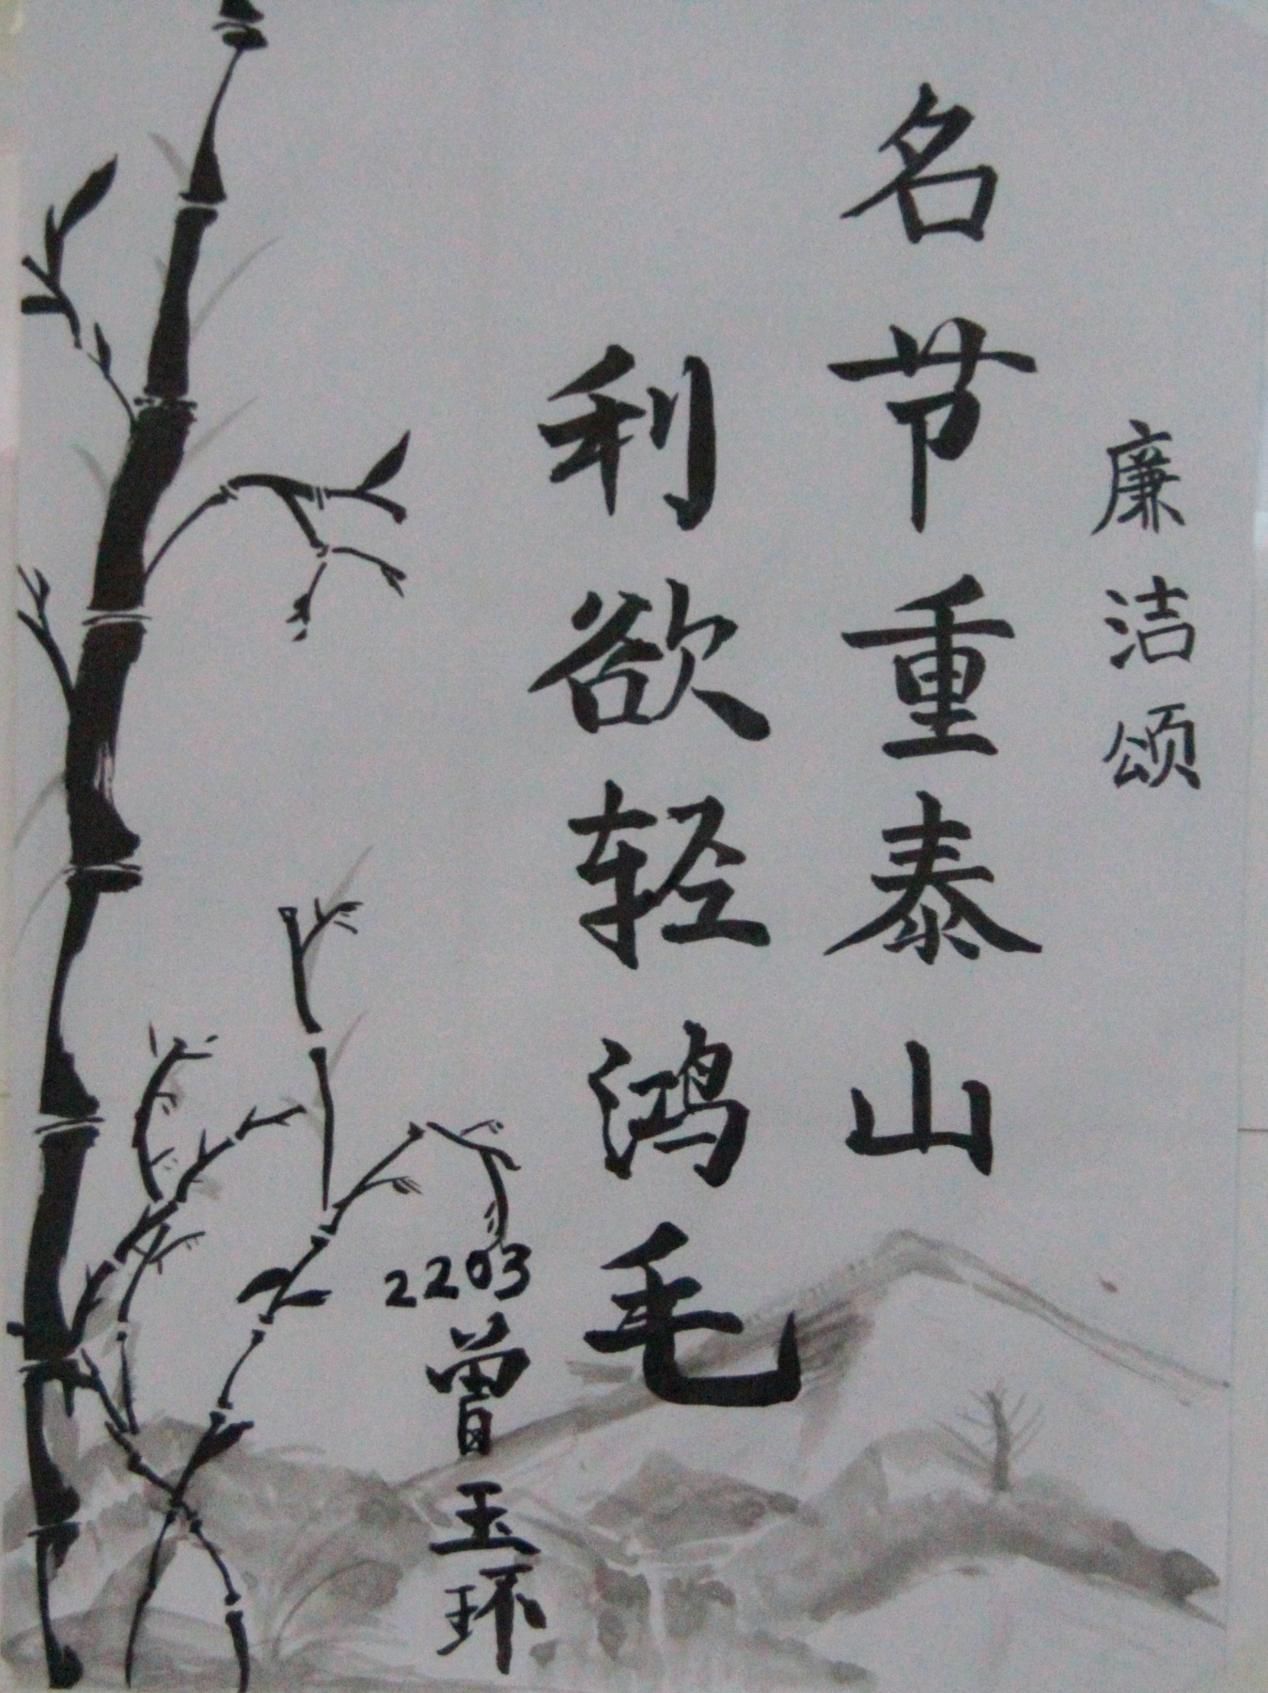 廉洁颂
名节重泰山
利欲轻鸿毛
2203
曾玉环